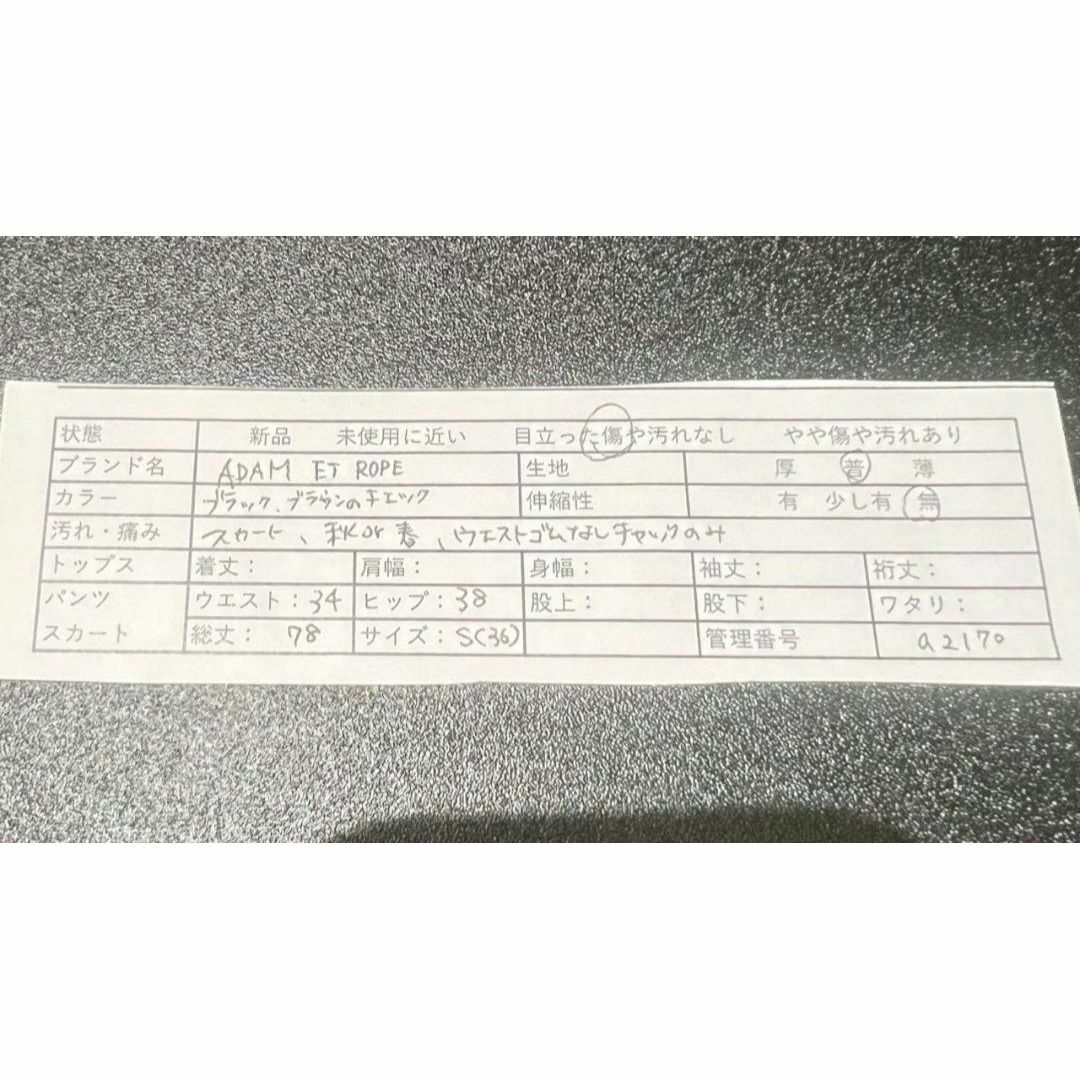 状態 新品 未使用に近い 目立った傷や汚れなし やや傷や汚れあり
ブランド名 ADAM ET ROPE 生地 厚 普 薄
カラー ブラック、ブラウンのチェック 伸縮性 有 少し有 無
汚れ・痛み スカート、秋or春、ウエストゴムなしチャックのみ
トップス 着丈： 肩幅： 身幅： 袖丈： 裄丈：
パンツ ウエスト：34 ヒップ：38 股上： 股下： ワタリ：
スカート 総丈： 78 サイズ：S(36) 管理番号 a2170